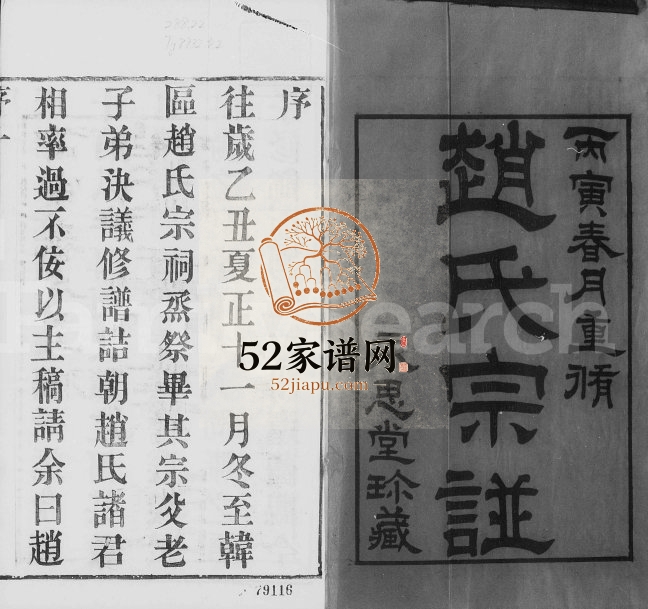 丙寅春月重脩
趙氏宗譜
思堂珍藏
序
往歲乙丑夏正十一月冬至韓
區趙氏宗祠烝祭畢其宗父老
子弟決議修譜詰朝趙氏諸君
相率過不佞以主稿請余曰趙
序
52家谱网
52jiapu.com
79116